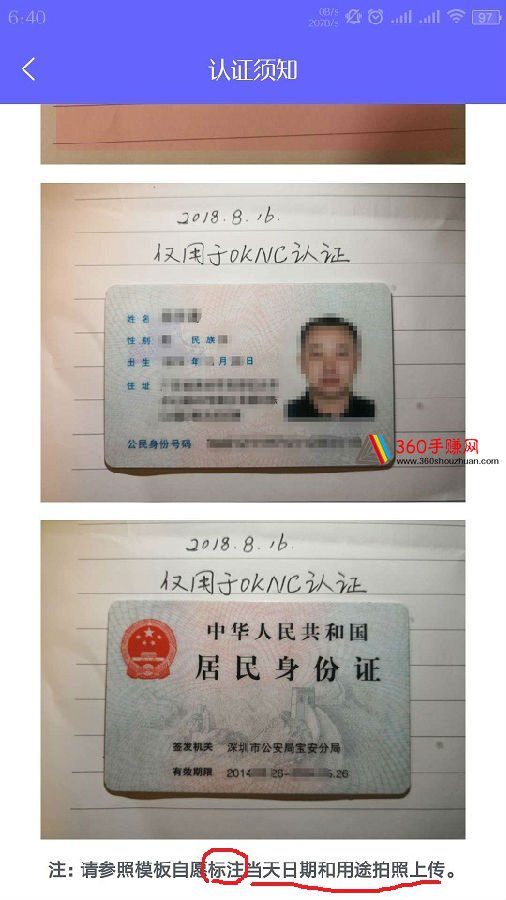 6:40
0B/s
207B/s
97
认证须知
2018.8.16.
仅用于OKNC认证
姓名
性别 民族
出生 年 月 日
住址
公民身份号码
360手赚网
www.360shouzhuan.com
2018.8.16.
仅用于OKNC认证
中华人民共和国
居民身份证
签发机关 深圳市公安局宝安分局
有效期限 2014
26- .26
注：请参照模板自愿标注当天日期和用途拍照上传。